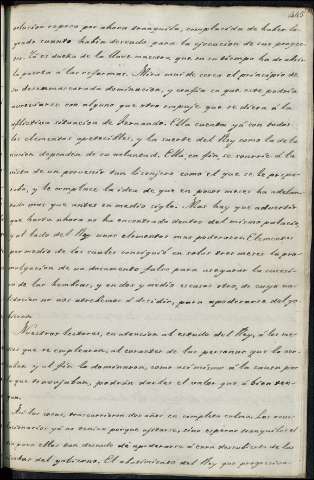 445
volucion reposa por ahora tranquila, complacida de haber lo-
grado cuanto habia deseado para la ejecucion de sus proyec-
tos. Ya es dueña de la llave maestra que en su tiempo ha de abrir
la puerta á las reformas. Mira mas de cerca el principio de
su desenmascarada dominacion, y confia en que este podria
acelerarse con alguno que otro empuje que se diera á la
aflictiva situacion de Fernando. Ella cuenta ya con todos
los elementos apetecibles, y la suerte del Rey como la de la
nacion dependen de su voluntad. Ella en fin, se sonrie á la
vista de un porvenir tan lisonjero como el que se le prepa-
raba, y le complace la idea de que en pocos meses ha adelan-
tado mas que antes en medio siglo. Mas hay que advertir
que hasta ahora no ha encontrado dentro del mismo palacio,
y al lado del Rey unos elementos mas poderosos. Elementos
por medio de los cuales consiguió en solos tres meses la pro-
mulgacion de un documento falso para asegurar la sucesi-
on de las hembras, y en dos y medio escasos otro, de cuya va-
lidacion no nos atrevemos á decidir, para apoderarse del go-
bierno.
Nuestros lectores, en atencion al estado del Rey, á los me-
dios que se emplearon, al caracter de las personas que lo ro-
deaban y al fin lo dominaron, como asi mismo á la causa por
la que trabajaban, podrán darles el valor que á bien ten-
gan.
Asi las cosas, transcurrieron dos años en completa calma. Los revo-
lucionarios ya no tenian porque agitarse, sino esperar tranquilos el
dia para ellos tan deseado de apoderarse á cara descubierta de las
riendas del gobierno. El abatimiento del Rey que progresiva-